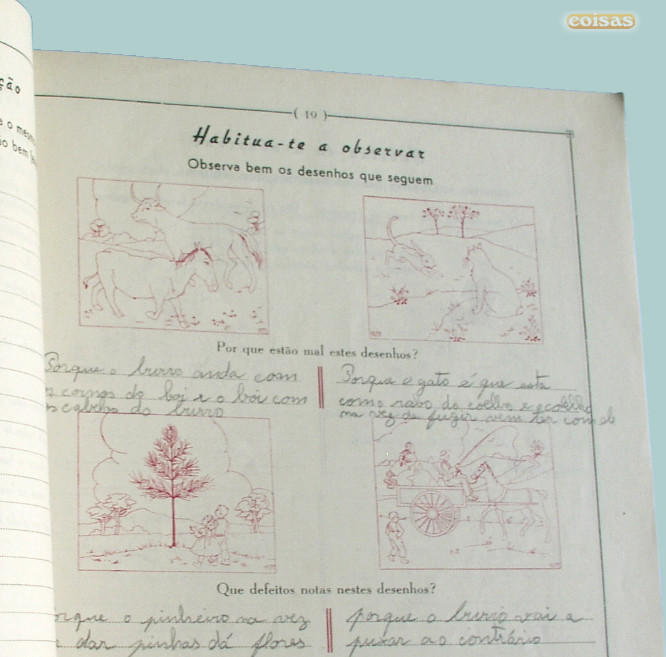 coisas
ção
( 19 )
Habitua-te a observar
Observa bem os desenhos que seguem
Por que estão mal estes desenhos?
Porque o burro anda com
s cornos do boi e o boi com
s cabelos do burro
Porque o gato é que esta
com o rabo do coelho e o coelho
na vez de fugir vem ter com ele
Que defeitos notas nestes desenhos?
orque o pinheiro na vez
e dar pinhas dá flores
porque o burro vai a
puxar ao contrário